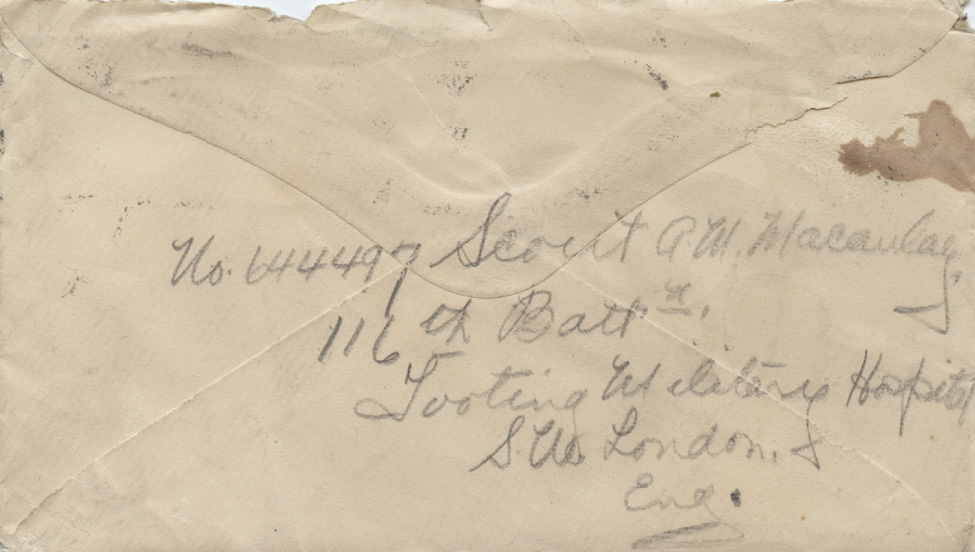 No. 644497 Scout A. M. Macaulay
116th Battn.
Tooting Military Hospital
S.W. London,
Eng.